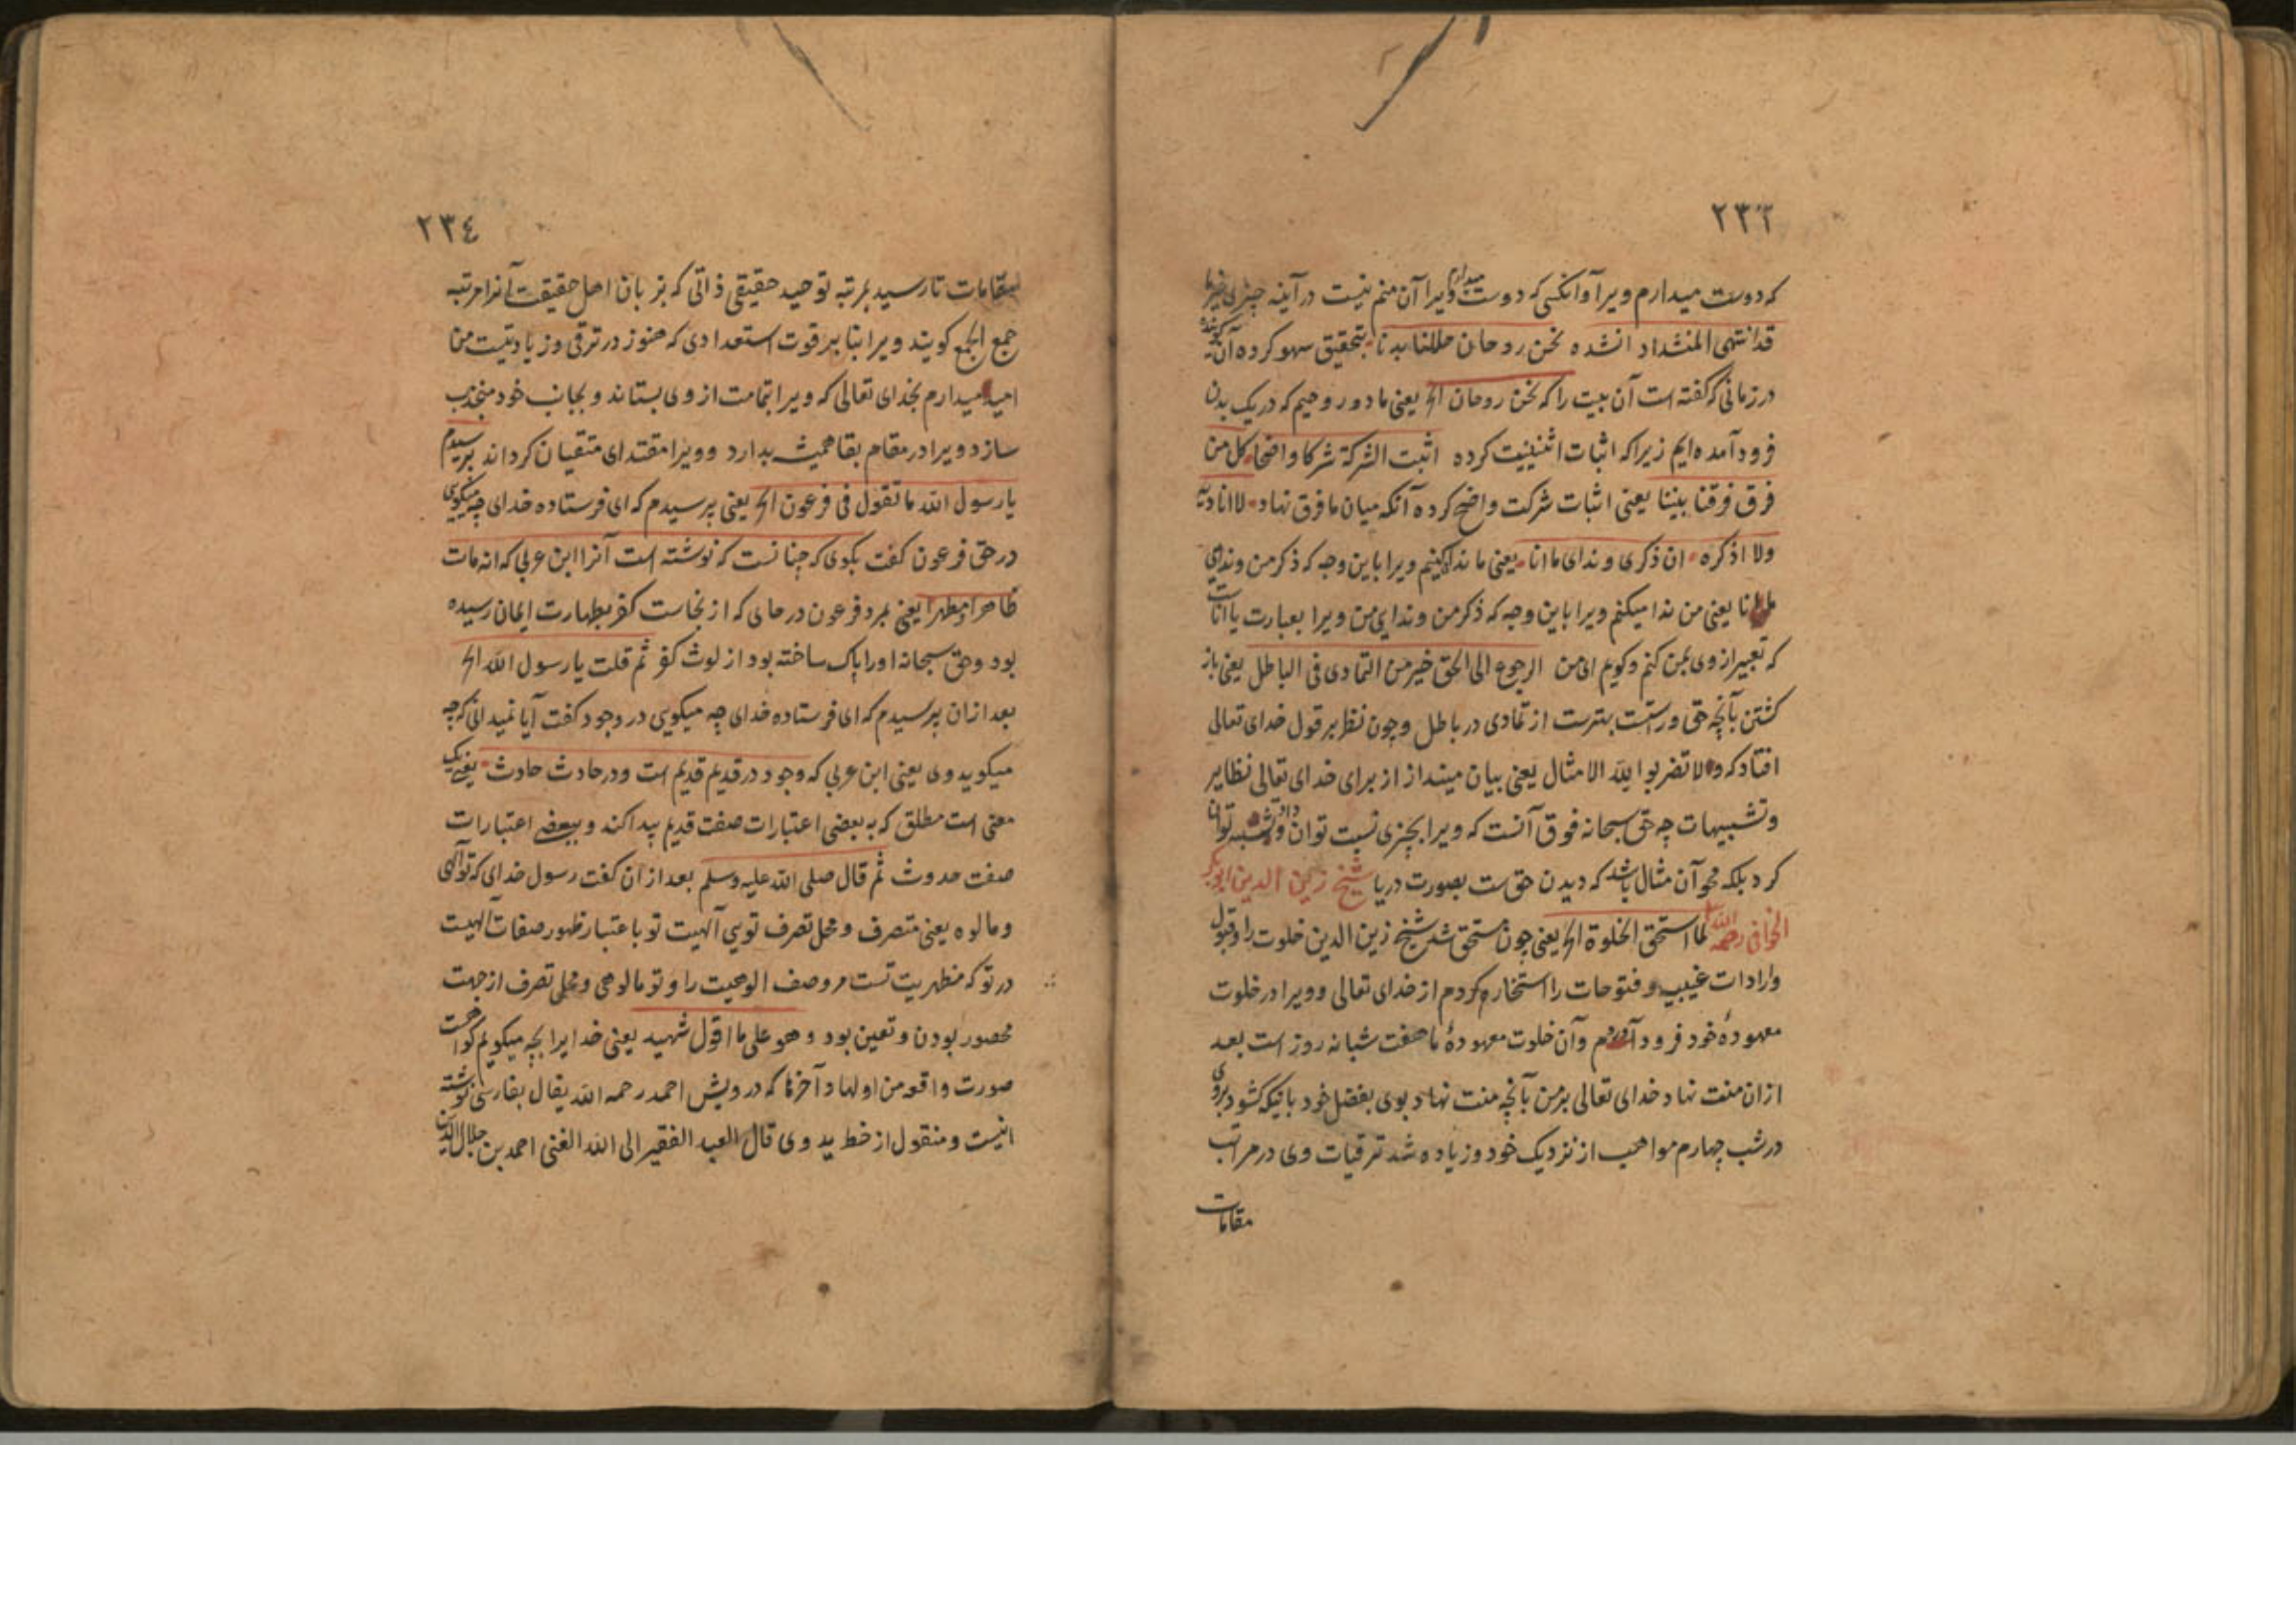 ٢٣٣
که دوست میدارم ویرا وآنکسی که دوست میدارم ویرا آن منم نیست در آینه چیزی غیر ما
قد انتهی المنشد اد انشده نحن روحان حللنا بدنا بتحقیق سهو کرده آن
در زمانی که کفته است آن بیت را که نحن روحان الخ یعنی ما دو روحیم که در یک بدن
فرود آمده ایم زیرا که اثبات اثنینیت کرده اثبت الشرکة شرکا واضحا کل من
فرق فرقنا بیننا یعنی اثبات شرکت واضح کرده آنکه میان ما فرق نهاد لا انادیه
ولا اذکره ان ذکری وندای ما انا یعنی ما ندا کنیم ویرا باین وجه که ذکر من وندای
یا انا یعنی من ندا میکنم ویرا باین وجه که ذکر من وندای من ویرا بعبارت یا انا است
که تعبیر از وی بمن کنم وکویم ای من الرجوع الی الحق خیر من التمادی فی الباطل یعنی باز
کشتن بآنچه حق وراستست بهترست از تمادی در باطل وچون نظر بر قول خدای تعالی
افتاد که ولا تضربوا لله الامثال یعنی بیان میندازاز برای خدای تعالی نظایر
وتشبیهات چه حق سبحانه فوق آنست که ویرا بچیزی نسبت توان داد وتشبیه توان
کرد بلکه محو آن مثال باشد که دیدن حق ست بصورت دریا شیخ زین الدین ابوبکر
الخوافی رحمه الله لما استحق الخلوة الخ یعنی چون مستحق شد شیخ زین الدین خلوت را وقبول
وارادات غیبیه وفتوحات را استخاره کردم از خدای تعالی وویرا در خلوت
معهودهٔ خود فرود آوردم وآن خلوت معهودهٔ ما هفت شبانه روز است بعد
ازان منت نهاد خدای تعالی بر من بآنچه منت نهاد بوی بفضل خود باینکه کشود بروی
در شب چهارم مواهب از نزدیک خود وزیاده شد ترقیات وی در مراتب
مقامات
٢٣٤
مقامات تا رسید بمرتبه توحید حقیقی ذاتی که بزبان اهل حقیقت آنرا مرتبه
جمع الجمع کویند ویرا بنا بر قوت استعدادی که هنوز در ترقی وزیادتیست من
امید میدارم بخدای تعالی که ویرا بتمامت از وی بستاند وبجانب خود منجذب
سازد ویرا در مقام بقا همیشه بدارد وویرا مقتدای متقیان کرداند پرسیدم
یا رسول الله ما تقول فی فرعون الخ یعنی پرسیدم که ای فرستاده خدای چه میکویی
در حق فرعون کفت بکوی که چنانست که نوشته است آنرا ابن عربی که انه مات
طاهرا مطهرا یعنی بمرد فرعون در حالی که از نجاست کفر بطهارت ایمان رسیده
بود وحق سبحانه اورا پاک ساخته بود از لوث کفر ثم قلت یا رسول الله الخ
بعد ازان پرسیدم که ای فرستاده خدای چه میکویی در وجود کفت آیا نمیدانی که چه
میکوید وی یعنی ابن عربی که وجود در قدیم قدیم است ودر حادث حادث یعنی یک
معنی است مطلق که به بعضی اعتبارات صفت قدیم پیدا کند وببعضی اعتبارات
صفت حدوث ثم قال صلی الله علیه وسلم بعد ازان کفت رسول خدای که تو الهی
ومالوه یعنی متصرف ومحل تصرف تویی آلهیت تو باعتبار ظهور صفات آلهیت
در تو که مظهریت تست مر وصف الوهیت را وتو مالوهی ومحلی تصرف از جهت
محصور بودن وتعین بود وهو علی ما اقول شهید یعنی خدا یرا بچه میکویم کواهست
صورت واقعه من اولها د آخرها که درویش احمد رحمه الله یقال بفارسی نوشته
اینست ومنقول از خط ید وی قال العبد الفقیر الی الله الغنی احمد بن جلال الدین